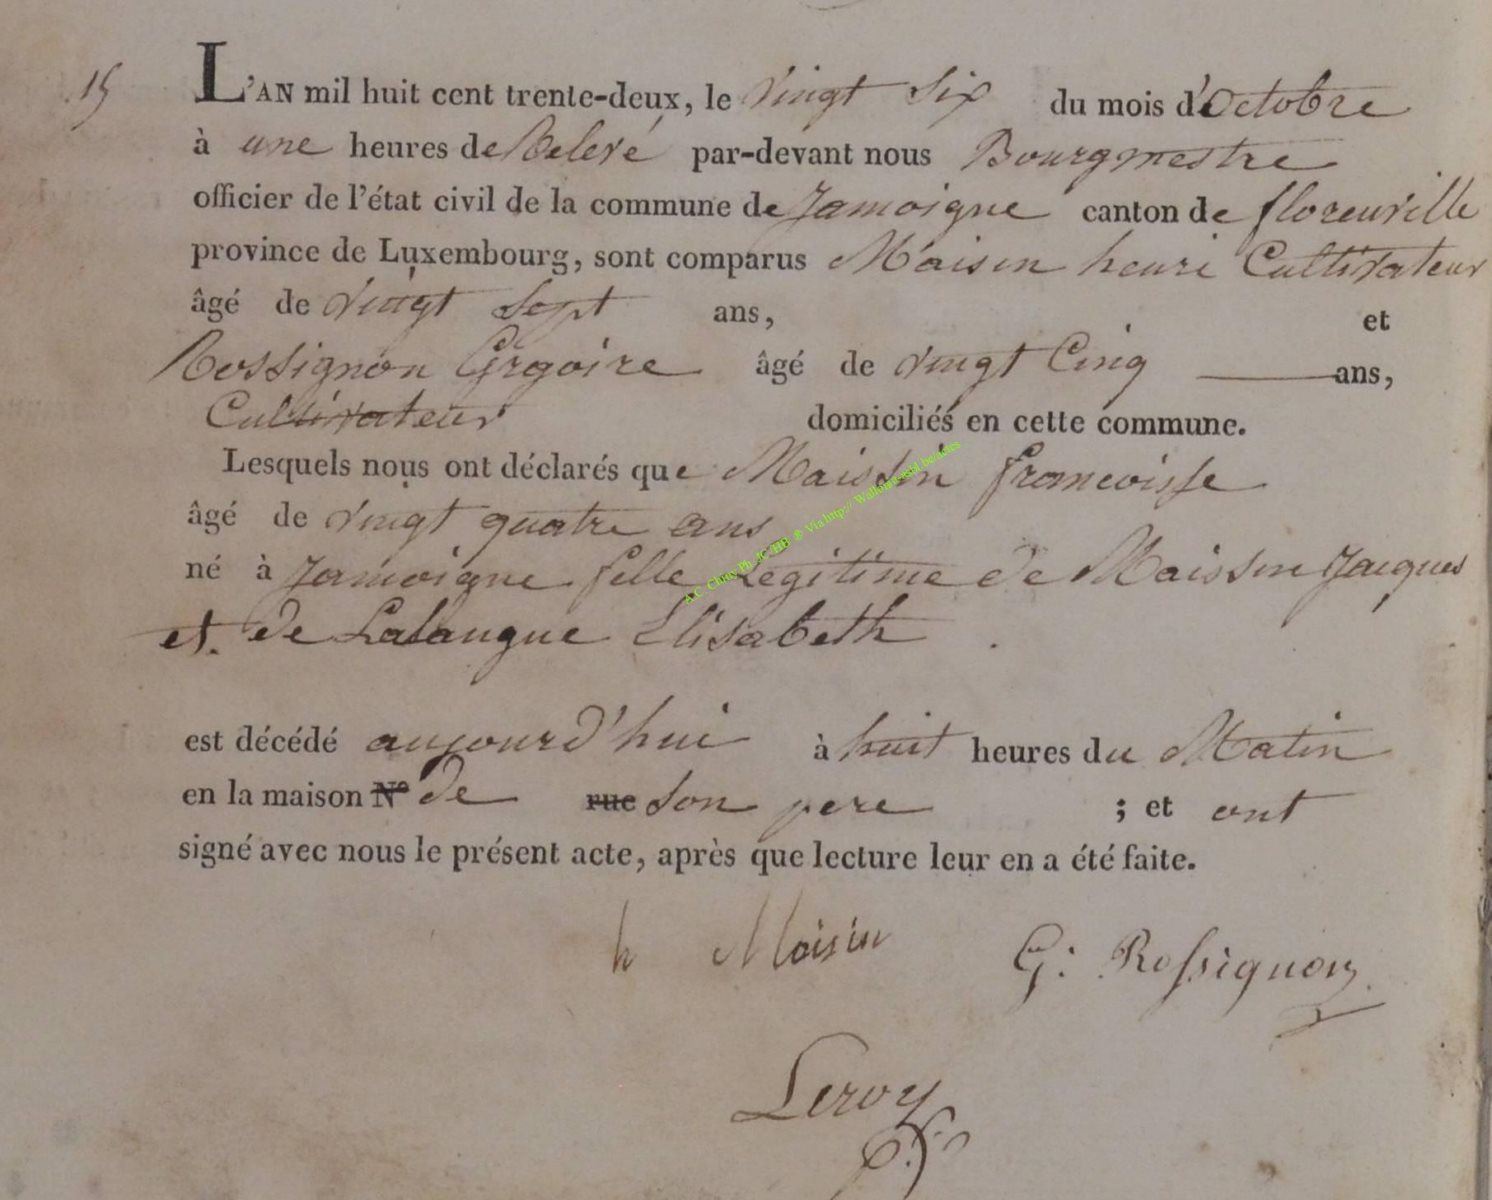 15 L'AN mil huit cent trente-deux, le vingt six du mois d'Octobre
à une heures de Relevé par-devant nous Bourgmestre
officier de l'état civil de la commune de Jamoigne canton de florenville
province de Luxembourg, sont comparus Maisin henri Cultivateur
âgé de vingt sept ans, et
Rossignon Grgoire âgé de vingt Cinq ans,
Cultivateur domiciliés en cette commune.
Lesquels nous ont déclarés que Maissin francoisse
âgé de vingt quatre ans
né à Jamoigne fille Legitime de Maissin Jacques
et de Lalangue Elisabeth.
est décédé aujourd'hui à huit heures du Matin
en la maison N° de rue son pere ; et ont
signé avec nous le présent acte, après que lecture leur en a été faite.
h Moisin G: Rossignon
Leroy